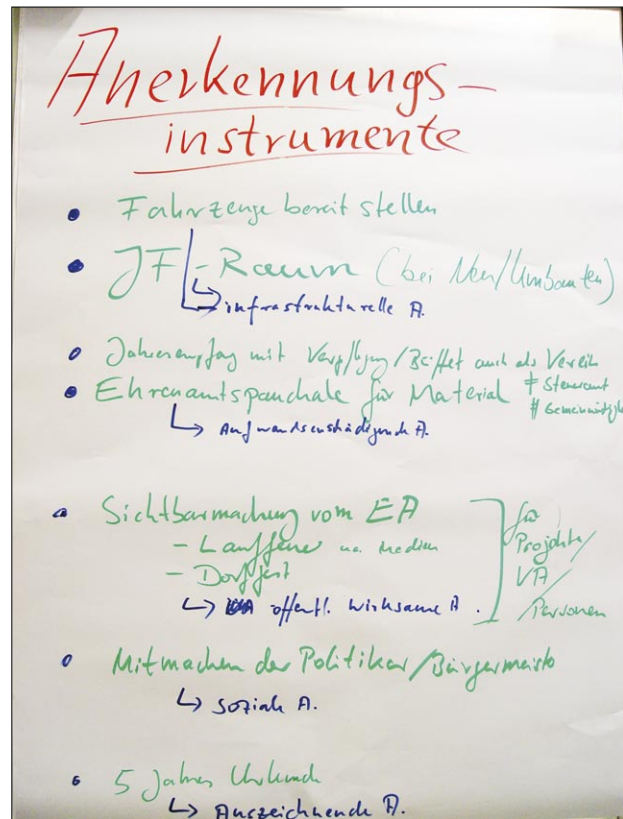 Anerkennungs-
instrumente
Fahrzeuge bereit stellen
JF-Raum (bei Neu/Umbauten)
infrastrukturelle A.
Jahresempfang mit Verpflegung/Büffet auch als Verein
Ehrenamtspauschale für Material ≠ Steueramt
# Gemeinnützigk
Aufwandsentschädigende A.
Sichtbarmachung vom EA
- Lauffener
- Dorffest
öffentl. wirksame A.
für
Projekte/
VA/
Personen
Mitmachen der Politiker/Bürgermeister
soziale A.
5 Jahres Urkunde
Auszeichnende A.